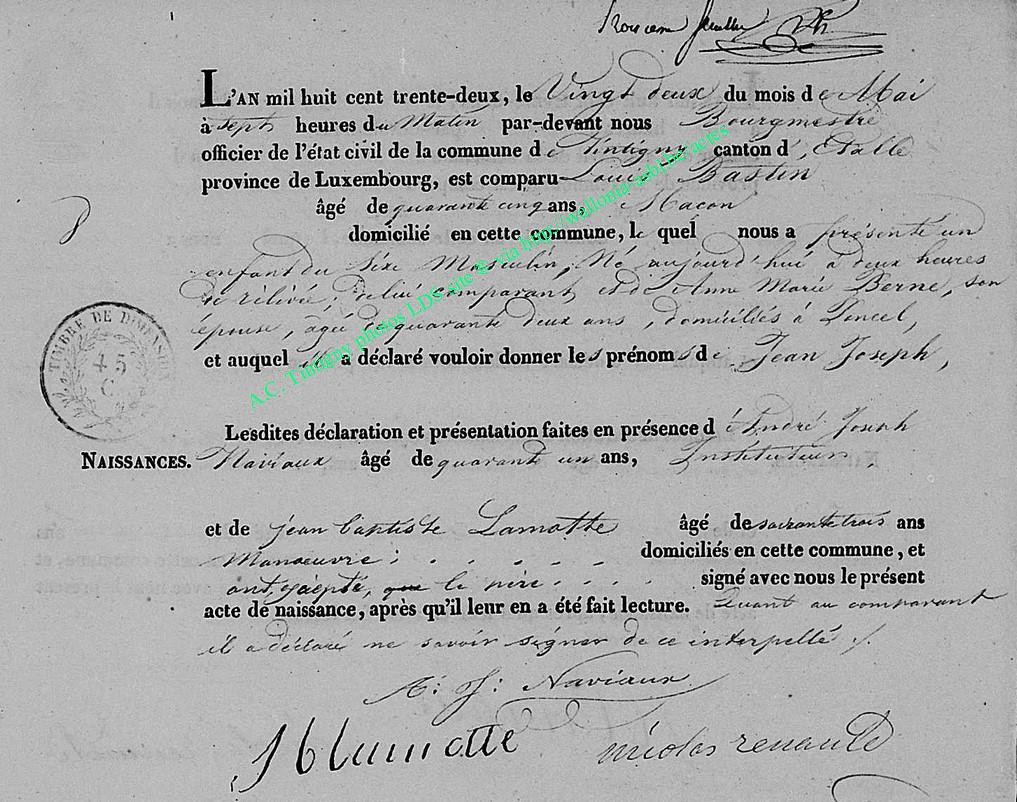 L'AN mil huit cent trente-deux, le Vingt deux du mois de Mai
à sept heures du Matin par-devant nous Bourgmestre
officier de l'état civil de la commune de Tintigny canton d'Etalle
province de Luxembourg, est comparu Louis Bastin
âgé de quarante cinq ans, Macon
domicilié en cette commune, le quel nous a présenté un
enfant du sèxe Masculin, Né aujourd'hui à deux heures
de rélivée, de lui comparant et de Anne Marie Berne, son
épouse, âgée de quarante deux ans, domiciliés à Poncel,
et auquel il a déclaré vouloir donner les prénoms de Jean Joseph,
Lesdites déclaration et présentation faites en présence d'André Joseph
NAISSANCES. Naviaux âgé de quarante un ans, Instituteur,
et de jean baptiste Lamotte âgé de soixante trois ans
Manoeuvre domiciliés en cette commune, et
ont, excepté, que le père signé avec nous le présent
acte de naissance, après qu'il leur en a été fait lecture. Quant au comparant
il a déclaré ne savoir signer de ce interpellé ./.
A: J: Naviaux
J b lamotte nicolas renauld
TIMBRE DE DIMENSION
45
C
A.C. Tintigny photos LDS site © via http://wallonia-asbl.be/actes